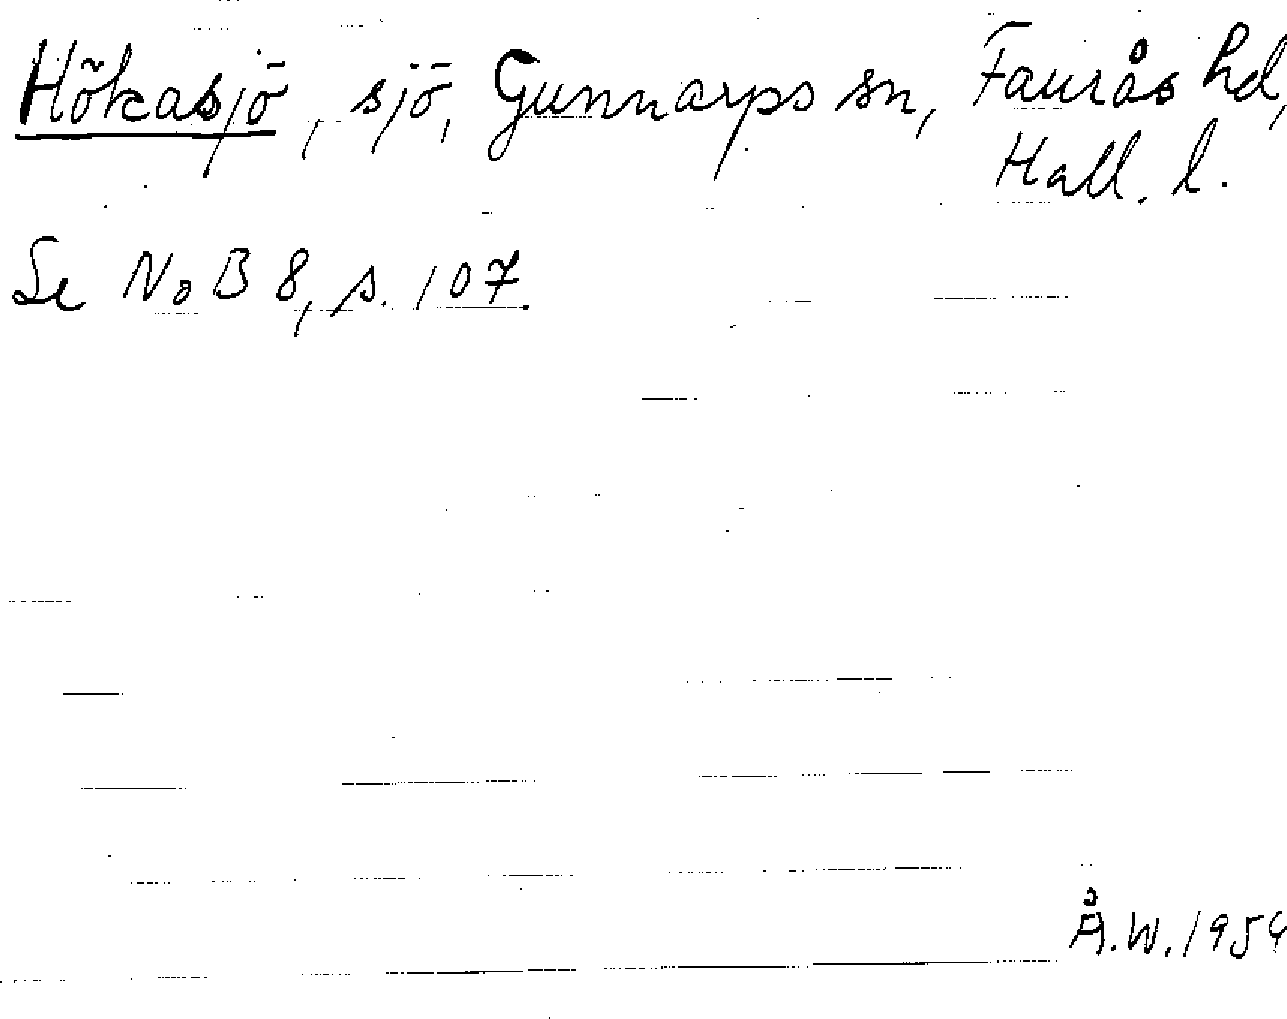 Hökasjö, sjö, Gunnarps sn, Faurås hd,
Hall. l.
Se NoB 8, s. 107.
Å.W. 1954